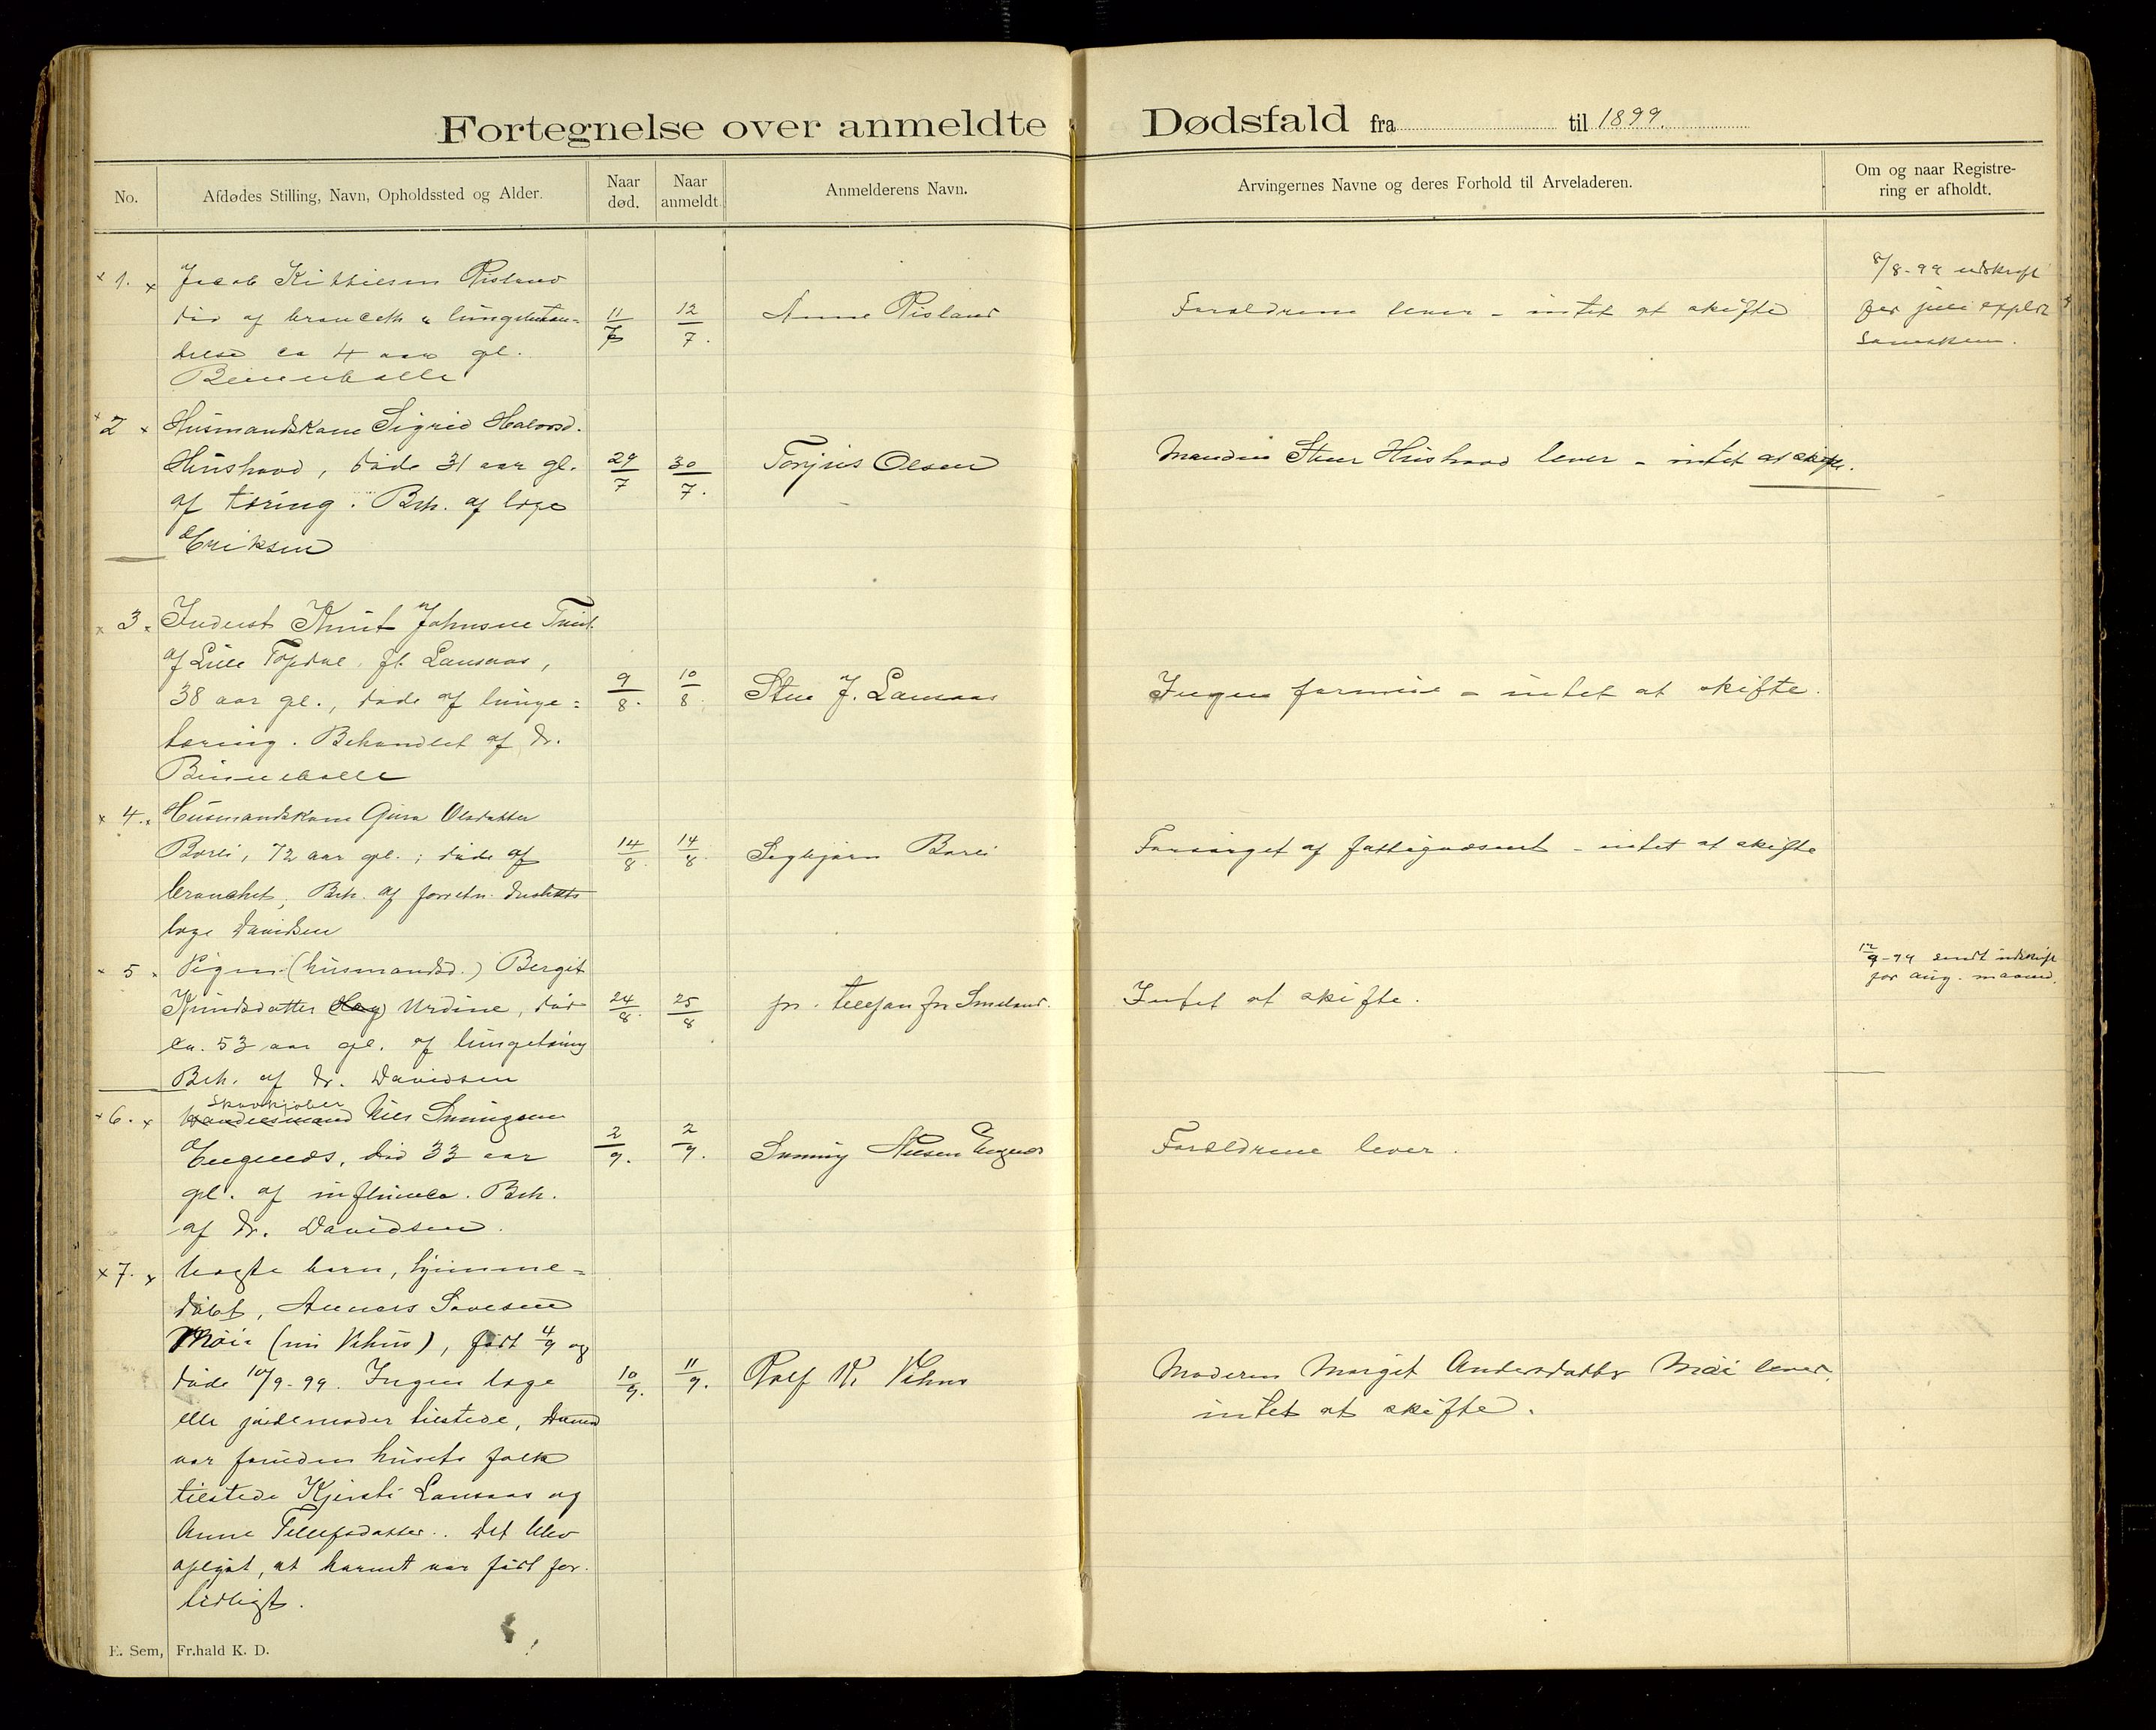 Fortegnelse over anmeldte Dødsfald fra til 1899.
No.
Afdødes Stilling, Navn, Opholdssted og Alder.
Naar død.
Naar anmeldt.
Anmelderens Navn.
Arvingernes Navne og deres Forhold til Arveladeren.
Om og naar Registre-
ring er afholdt.
1. Jacob Kittilsen Risland
død af bronceth & lungebetæn-
delse ca 4 aar gl.
11/7
12/7.
Anne Risland
Forældrene lever - intet at skifte
8/8-99 udskrift
for juli
2 Husmandskone Sigrid Halvorsd.
Hushovd, døde 31 aar gl.
af tæring. Beh. af læge
Eriksen
29/7
30/7.
Torjus Olsen
Manden Steen Hushovd lever - intet at skifte.
3. Inderst Knut Johnsen Tveit
af Lille Topdal, fl. Lauvaas,
38 aar gl., døde af lunge=
tæring. Behandlet af dr.
9/8.
10/8.
Sten J. Lauvaas
Ingen formue - intet at skifte.
4. Husmandskone Gúro Olsdatter
Borti, 72 aar gl.; døde af
bronchit, Beh. af forretn. distrikts
læge Davidsen
14/8.
14/8.
Sigbjørn Borti
Forsørget af fattigvæsent - intet at skifte
5 Pigen (húsmandsd.) Bergit
Knúdsdatter Urdine, død
ca. 53 aar gl. af lúngetæring
Beh. af dr. Davidsen
24/8.
25/8
pr. telefon fr Smeland.
Intet at skifte.
12/9-99 sendt udskrift
for aug. maaned.
Skovkjøber
6. Handelsmand Nils Sunnigsen
Engenes, død 33 aar
gl. af inflúenca. Beh.
af dr. Davidsen.
2/9.
2/9.
Sunnig Nilsen Engenes
Forældrene lever.
7. Uægte barn, hjemme=
døbt, Anners Savesen
Moi (ni Vehus), født 4/9 og
døde 10/9-99. Ingen læge
elle jordemoder tilstede,
var foruden húsets folk
tilstede Kjersti Lauvaas og
Anne Tellefsdatter. Det blev
oplyst, at barnet var født for
tidligt.
10/9.
11/9.
Rolf K. Vehus
Moderen Margit Andersdatter Moi lever.
intet at skifte.
E. Sem, Fr.hald K. D.